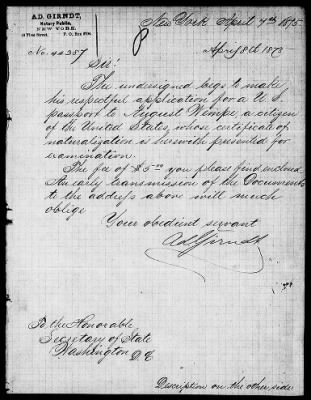 AD. GIRNDT,
Notary Public,
NEW YORK.
P. O. Box
New York April 7th 1873
No. 42357
April 8th 1873
Sir!
The undersigned begs to make
his respectful application for a U. S.
passport to August Wempe, a citizen
of the United States, whose certificate of
naturalization is herewith presented for
examination.
The fee of $5.00 you please find enclosed.
An early transmission of the Documents
to the address above will much
oblige
Your obedient servant
Ad. Girndt
To the Honorable
Secretary of State
Washington
D. C.
Description on the other side